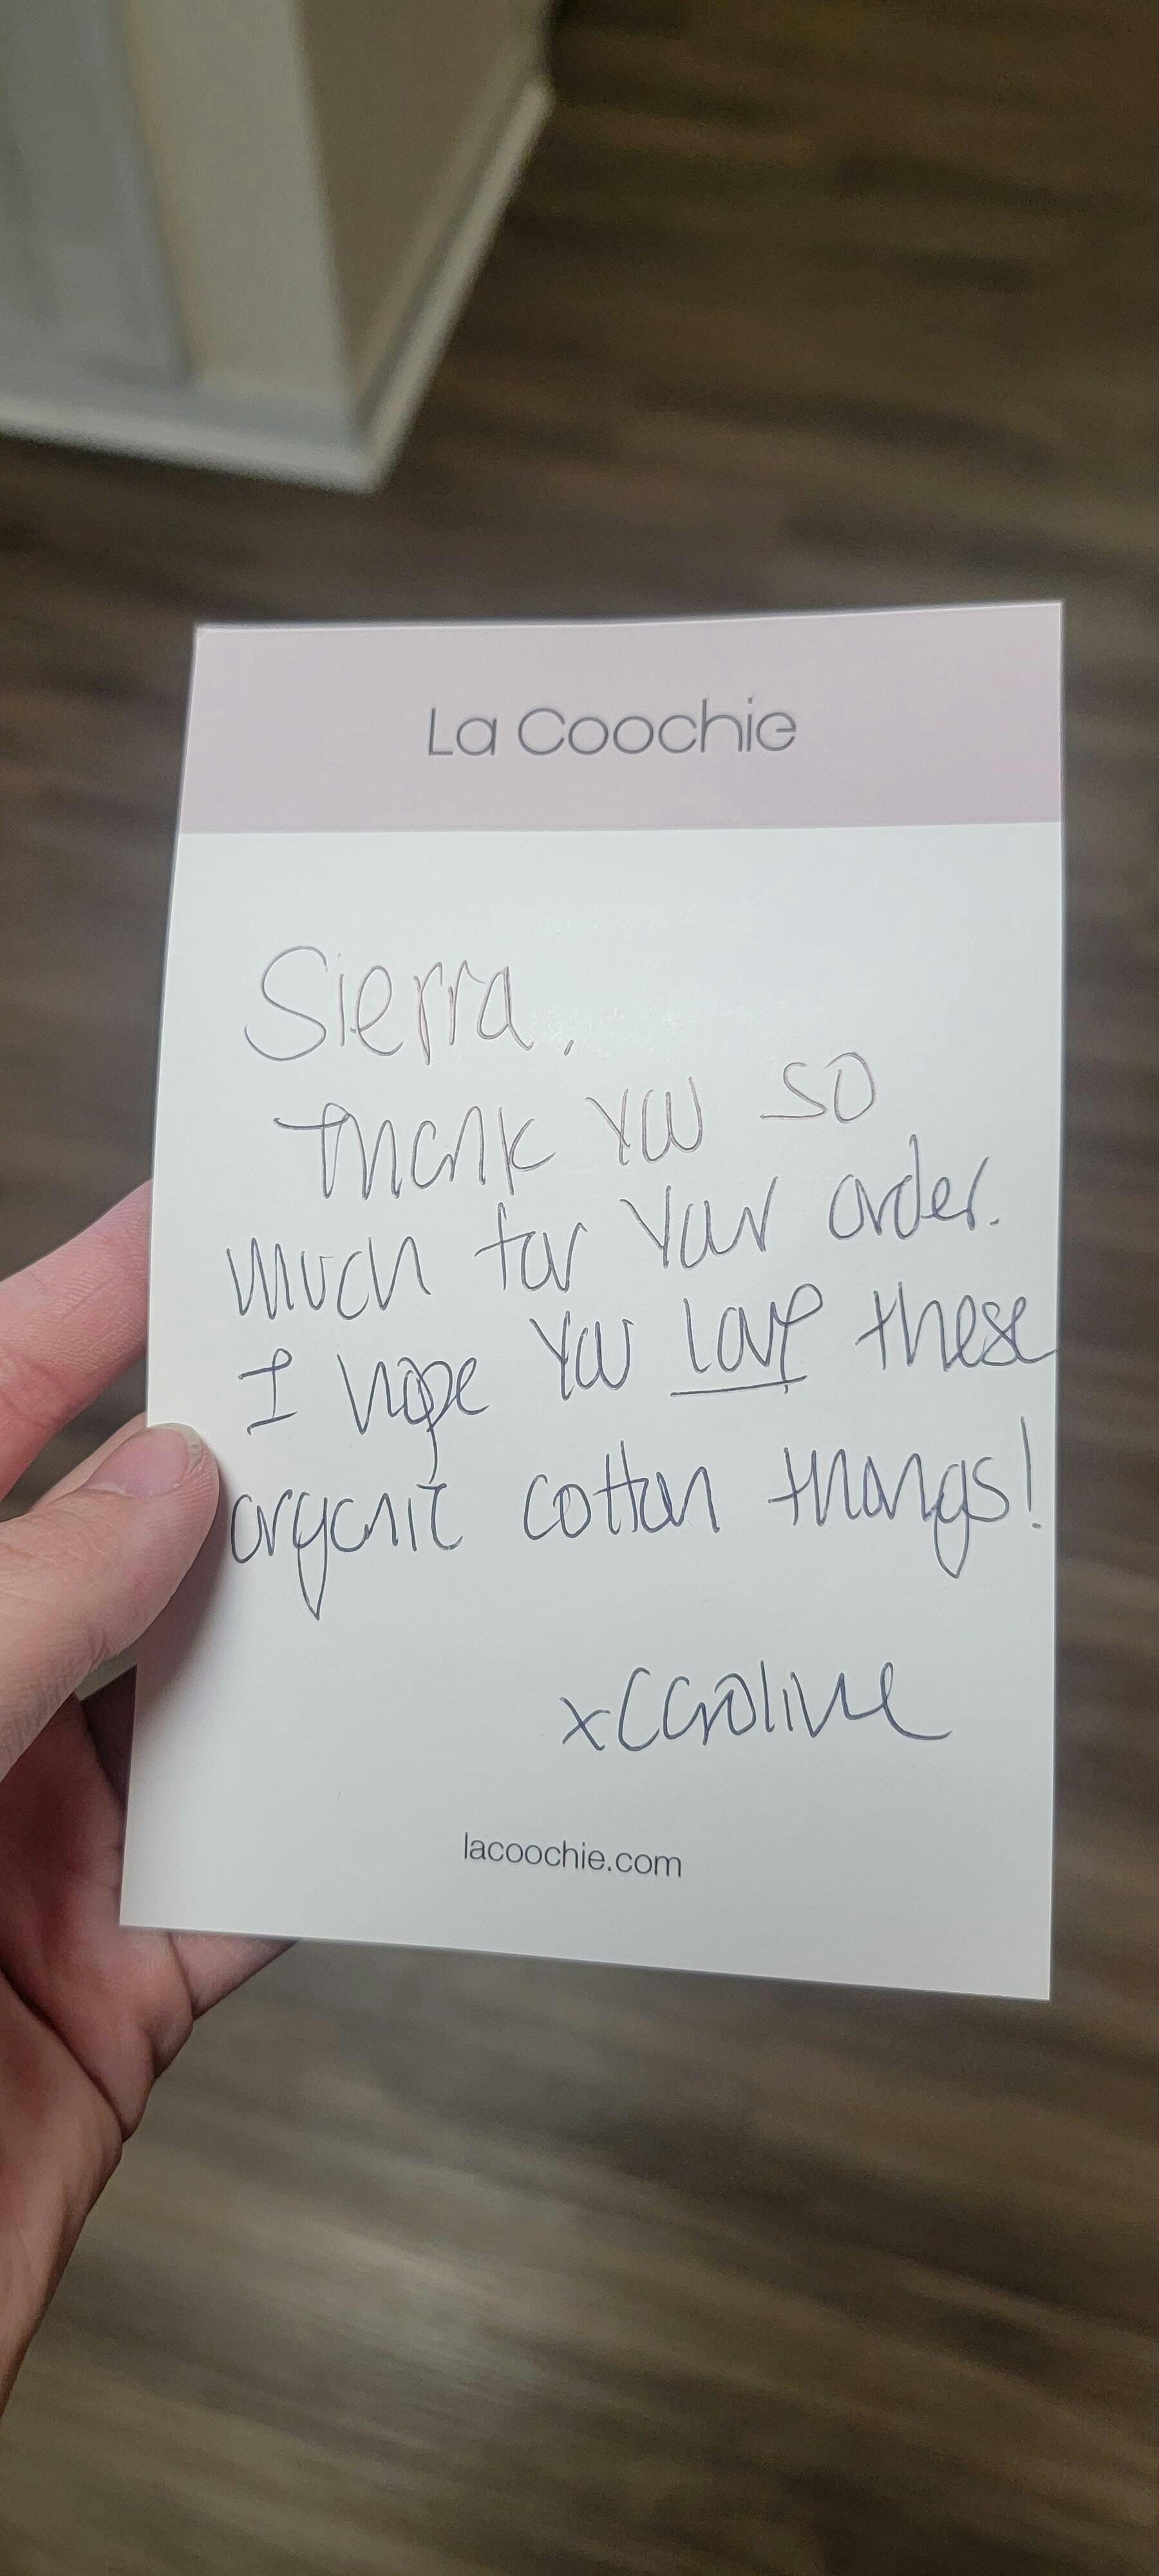 La Coochie
Sierra,
Thank you so
much for your order.
I hope you love these
organic cotton thongs!
xCaroline
lacoochie.com